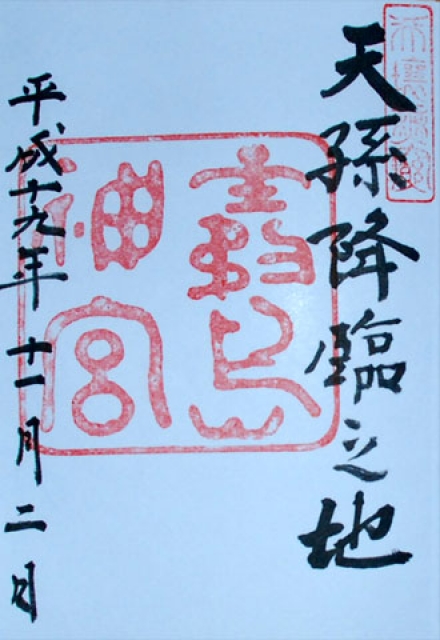 天孫降臨之地
霧島
神宮
平成十九年十一月二日